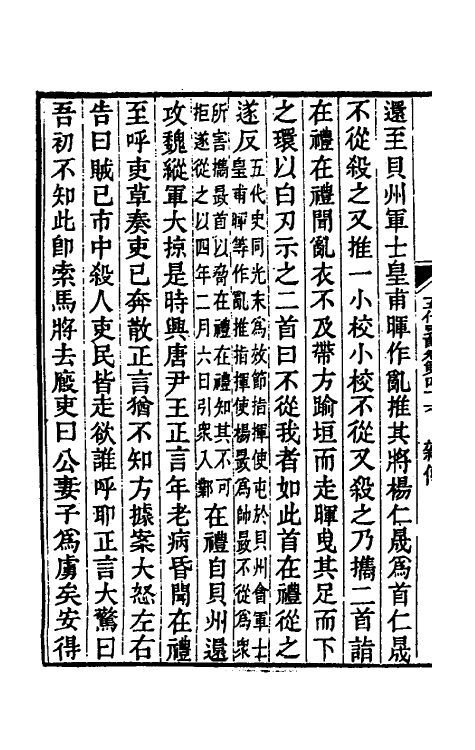 還至貝州軍士皇甫暉作亂推其將楊仁晟爲首仁晟
不從殺之又推一小校小校不從又殺之乃攜二首詣
在禮在禮聞亂衣不及帶方踰垣而走暉曳其足而下
之環以白刃示之二首曰不從我者如此首在禮從之
遂反
五代史同光末爲效節指揮使屯於貝州會軍士
皇甫暉等作亂推指揮使楊晟爲帥晟不從爲衆
所害攜晟首以脅在禮在禮知其不可
拒遂從之以四年二月六日引衆入鄴
在禮自貝州還
攻魏縱軍大掠是時興唐尹王正言年老病昏聞在禮
至呼吏草奏吏已奔散正言猶不知方據案大怒左右
告曰賊已市中殺人吏民皆走欲誰呼耶正言大驚曰
吾初不知此卽索馬將去廐吏曰公妻子爲虜矣安得
雜傳